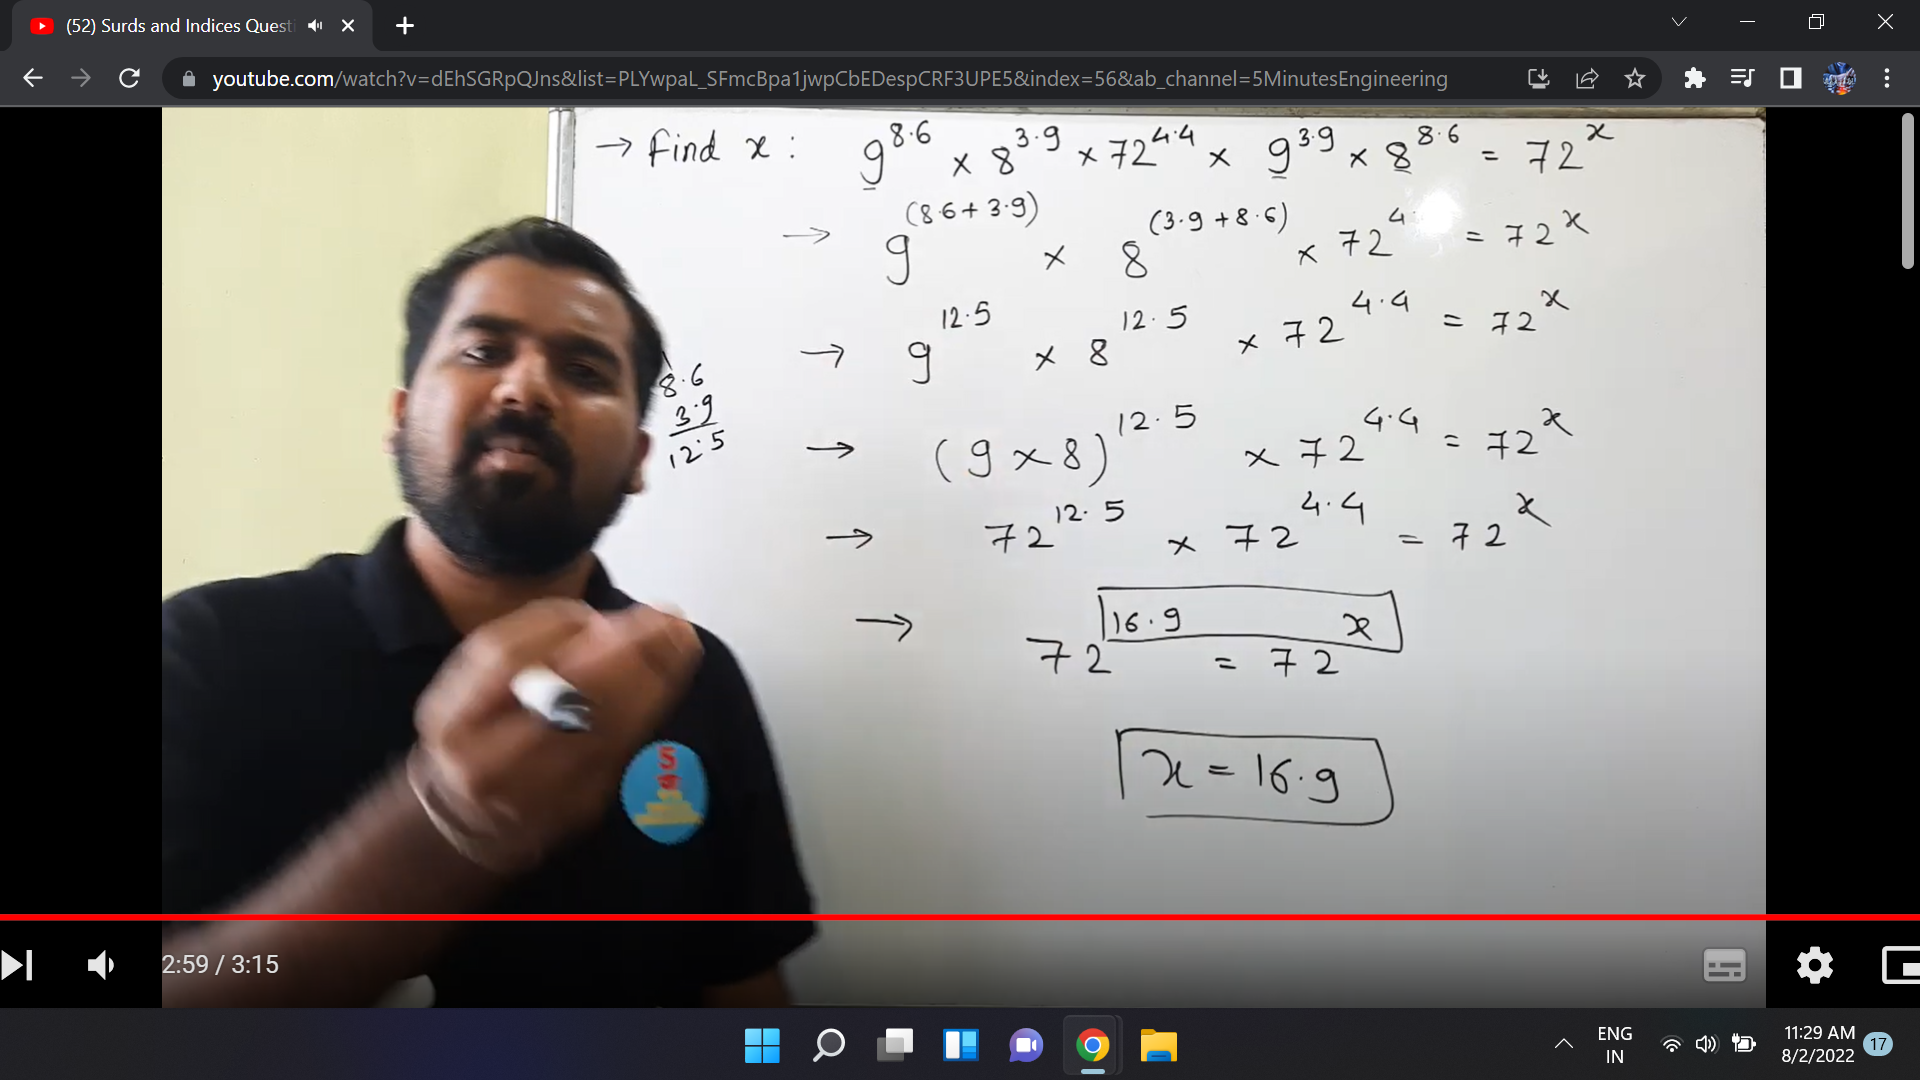 (52) Surds and Indices Questi
youtube.com/watch?v=dEhSGRpQJns&list=PLYwpaL_SFmcBpa1jwpCbEDespCRF3UPE5&index=56&ab_channel=5MinutesEngineering
→ find x : 9^8.6 × 8^3.9 × 72^4.4 × 9^3.9 × 8^8.6 = 72^x
→ 9^(8.6+3.9) × 8^(3.9+8.6) × 72^4. = 72^x
→ 9^12.5 × 8^12.5 × 72^4.4 = 72^x
8.6
3.9
12.5
→ (9×8)^12.5 × 72^4.4 = 72^x
→ 72^12.5 × 72^4.4 = 72^x
→ 72^16.9 = 72^x
x = 16.9
5
2:59 / 3:15
ENG
IN
11:29 AM
8/2/2022
17